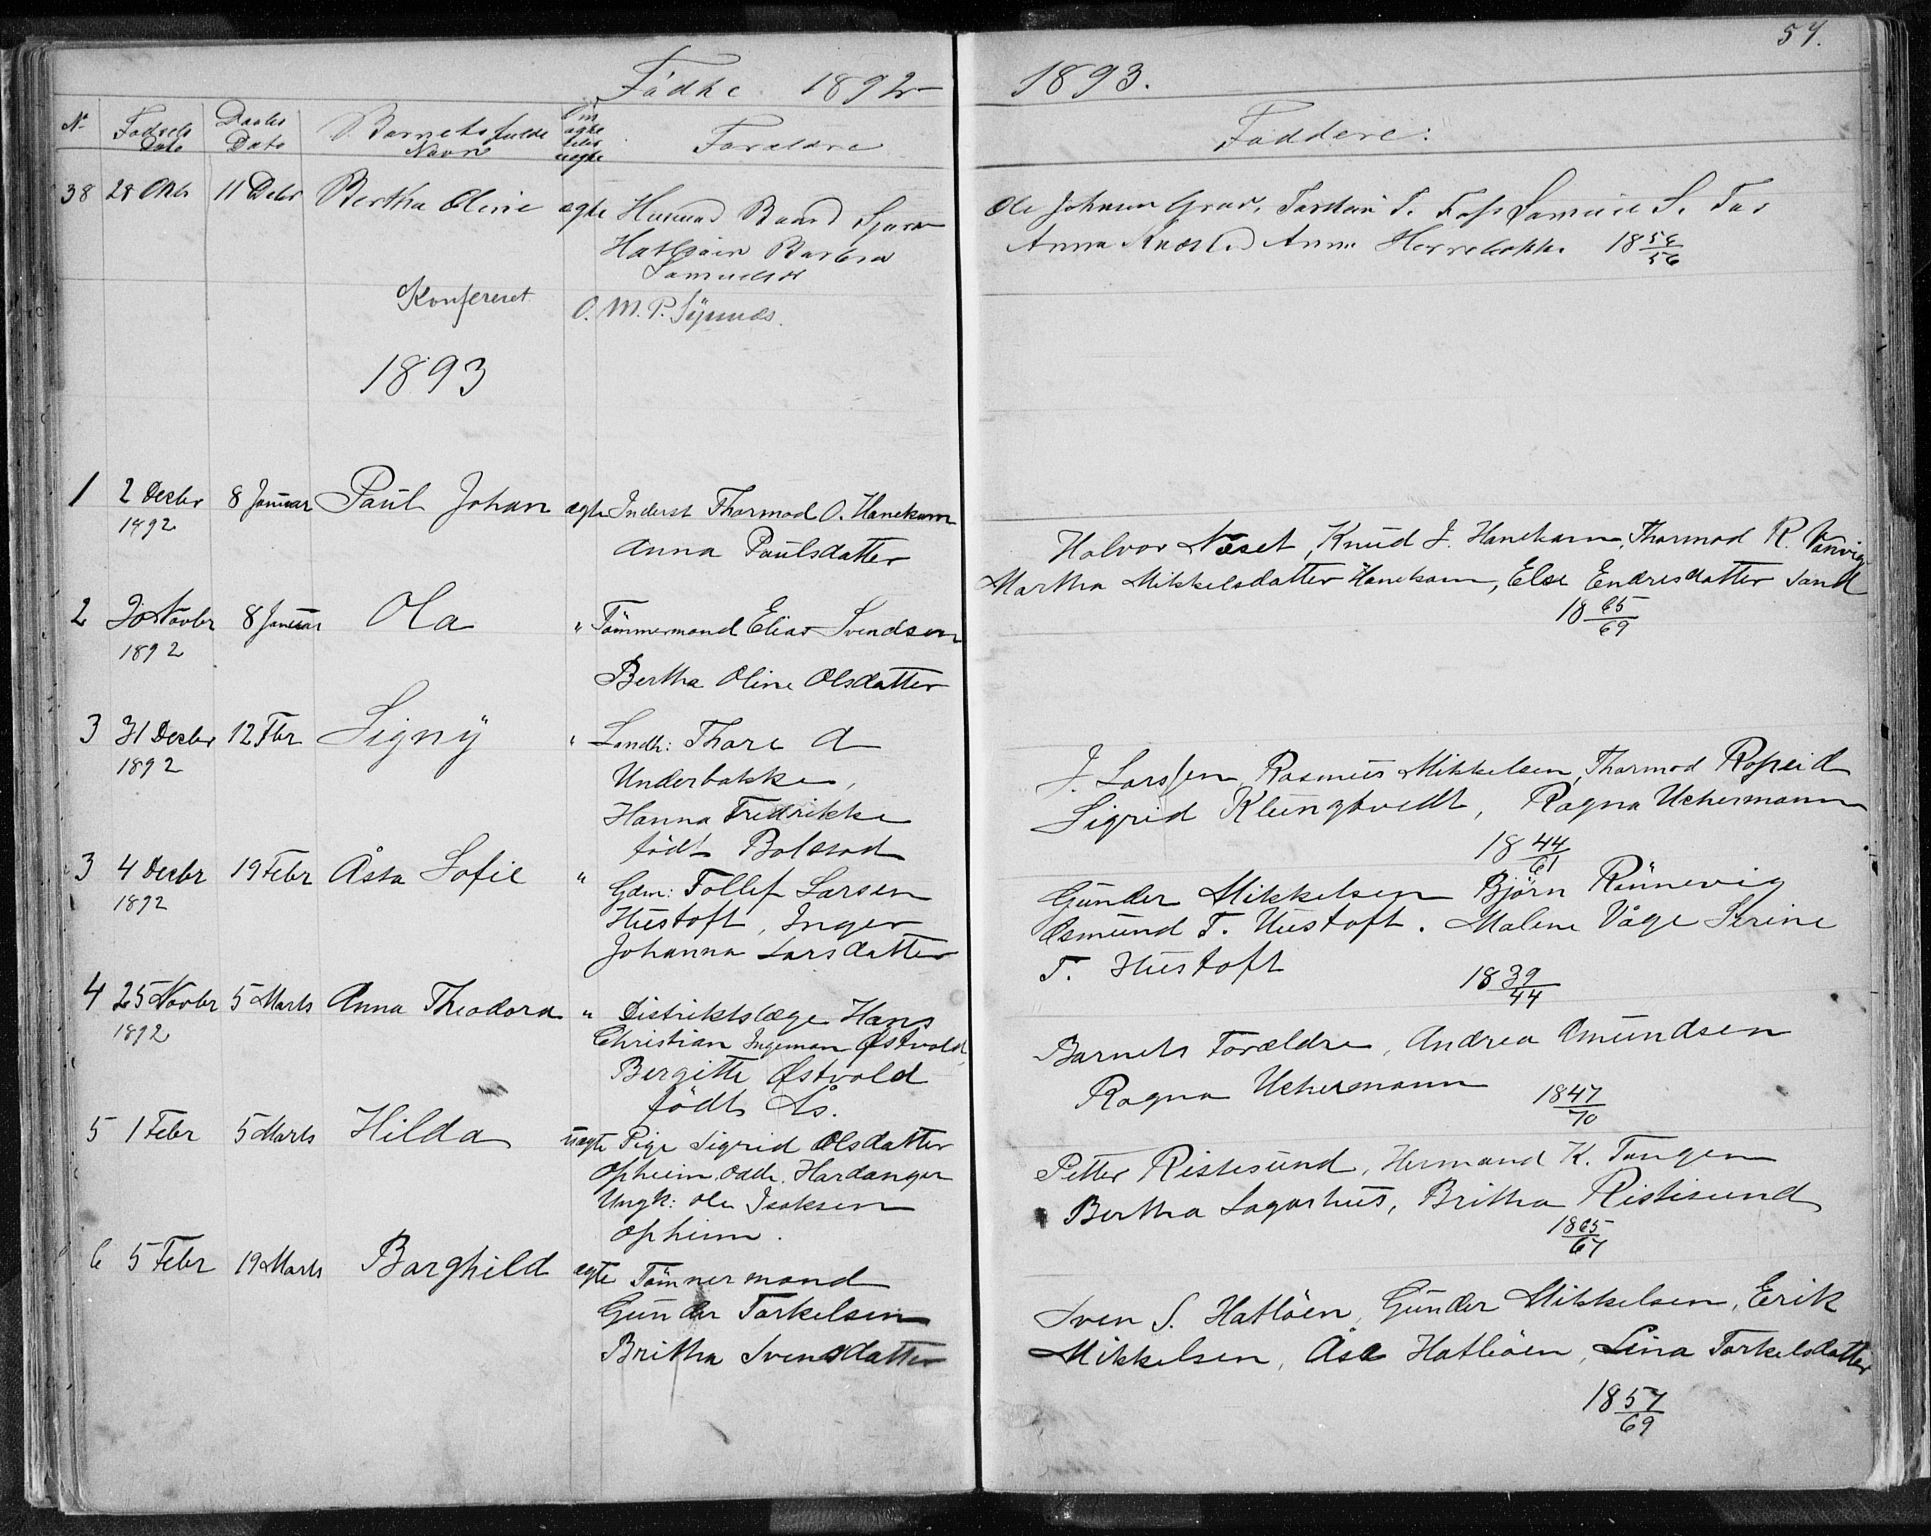 Födte 1892
1893.
57.
No
Fødsels Date
Daabs Date
Barnets fulde Navn
Om ægte eller uægte
Forældre
Faddere:
38 28 Oktb 11 Decbr Bertha Oline ægte Husmand Baard
Hatløien Barbra
Samuelsdr
Ole Johnsen Torstein T. Foss Samuel S.
Anna Anna 18 56/56
Konfereret
O. M. P. Synnes.
1893
1 2 Decbr 1892 8 Januar Paul Johan ægte Inderst Thormod O. Hanekam
Anna Paulsdatter
Halvor Næset, Knud J. Hanekam, Thormod R. Vanvig
Martha Mikkelsdatter Hanekam, Else Endresdatter Sand
18 65/69
2 30 Novbr 1892 8 Januar Ola " Tömmermand Elias Svendsen
Bertha Oline Olsdatter
3 31 Decbr 1892 12 Fbr Signÿ " Landh: Thore A
Underbakke,
Hanna Fredrikke
födt Bolstad
J. Larssen, Rasmus Mikkelsen, Thormod Ropeid
Sigrid Klungtvedt, Ragna Uchermann
18 44/61
3 4 Decbr 1892 19 Febr Åsta Sofie " Gdm: Tollef Larsen
Hustoft, Inger
Johanna Larsdatter
Gunder Mikkelsen Björn Rönnevig
Osmund T. Hustoft. Malene Våge Serine
T. Hustoft
18 39/44
4 25 Novbr 1892 5 Marts Anna Theodora " Distriktslæge Hans
Christian Ingeman Østvold,
Bergitte Østvold
födt Ås.
Barnets Forældre, Andrea Omundsen
Ragna Uchermann 18 47/70
5 1 Febr 5 Marts Hilda uægte Pige Sigrid Olsdatter
Opheim, Odde, Hardanger
Ungk: Ole Isaksen
Opheim.
Petter Ristesund, Hermand K. Tangen
Bertha Lagarhus, Britha Ristesund
18 65/67
6 5 Febr 19 Marts Borghild ægte Tömmermand
Gunder Torkelsen
Britha Svensdatter
Sven S. Hatlöen, Gunder Mikkelsen, Erik
Mikkelsen, Åsa Hatlöen, Lina Torkelsdatter
18 57/69